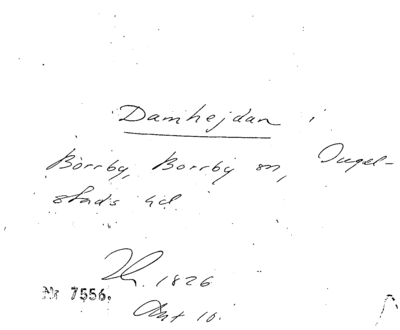 Damhejdan i
Borrby, Borrby sn, Ingel-
stads hd
1826
Nr 7556.
Akt 10.